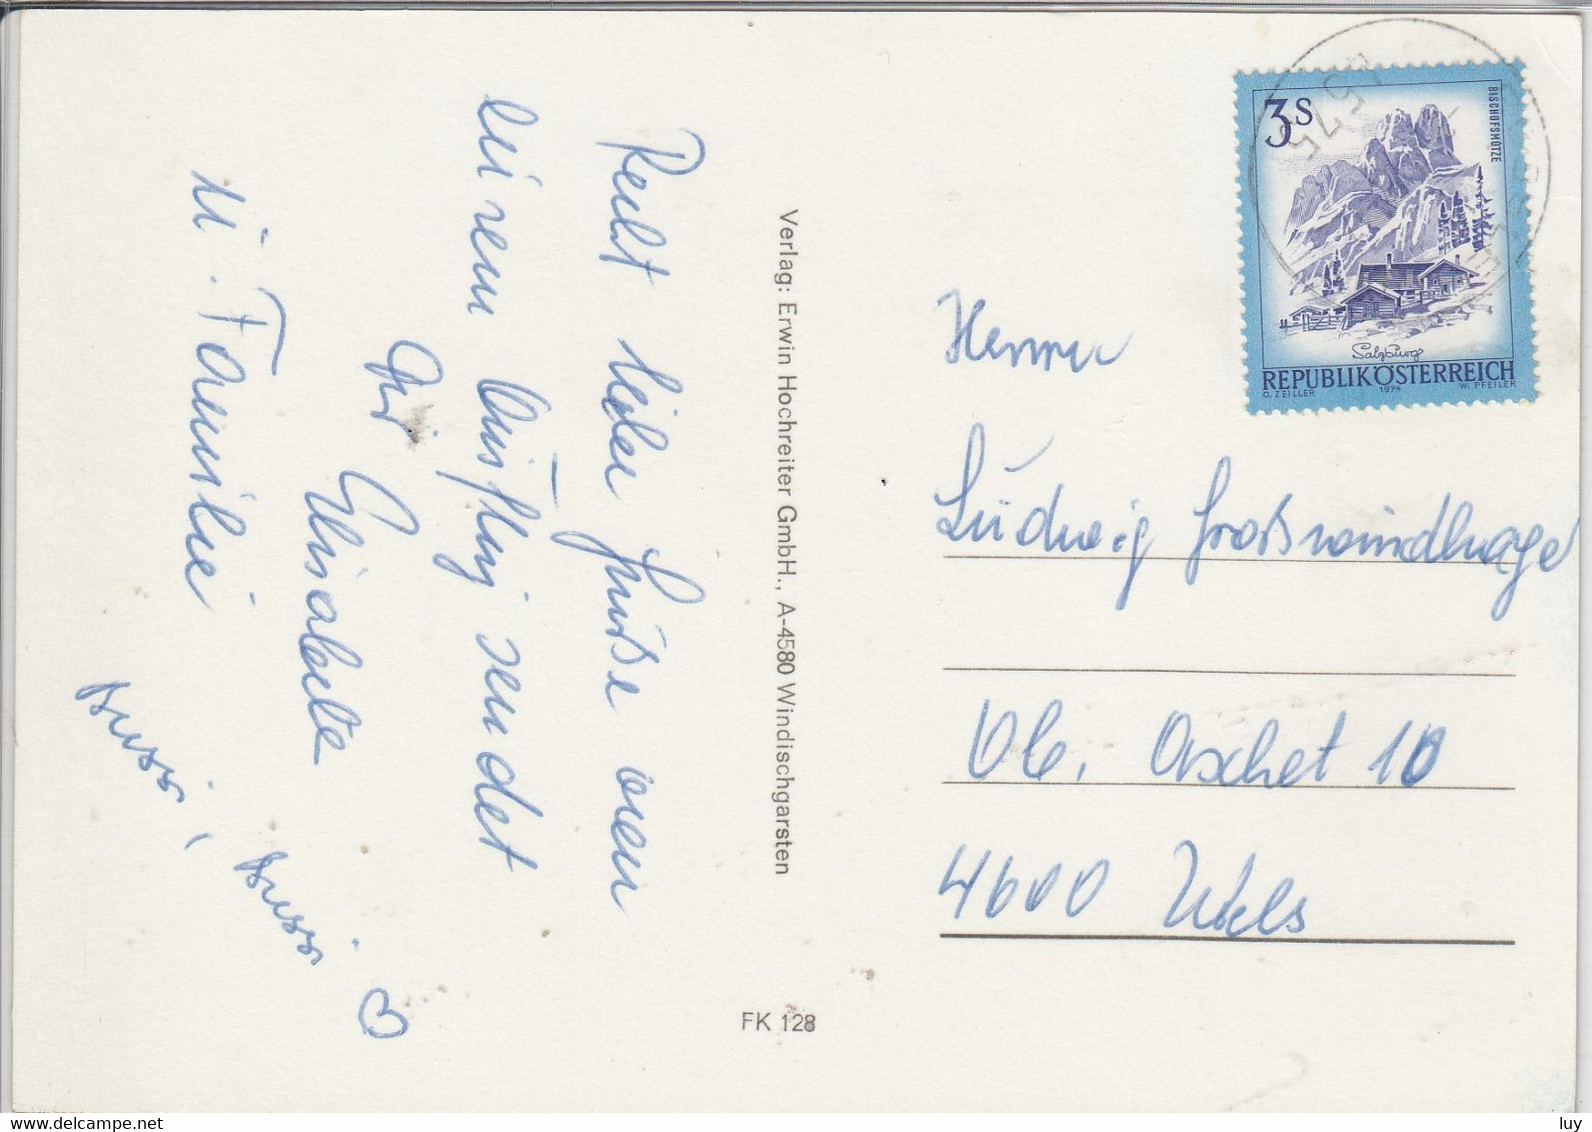 Recht liebe Grüße von
eurem Ausflug sendet
Dir Elisabeth
u. Familie
Bussi,
Bussi
Verlag: Erwin Hochreiter GmbH., A-4580 Windischgarsten
FK 128
3 S
BISCHOFSMÜTZE
Salzburg
REPUBLIK ÖSTERREICH
O. ZEILLER 1974 W. PFEILER
Herrn
Ludwig Großwindhager
Ob. Aschet 10
4600 Wels
www.delcampe.net
luy